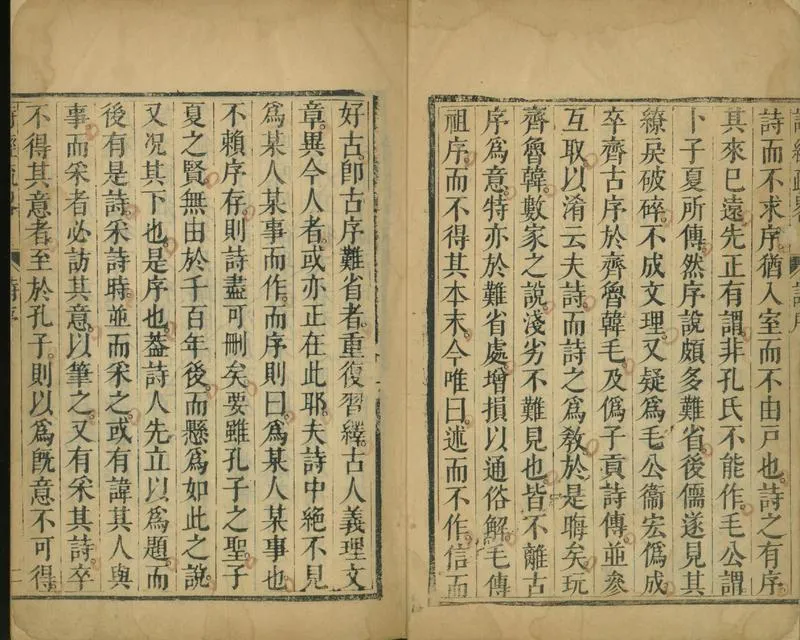 詩而不求序。猶入室而不由戶也。詩之有序。
其來已遠。先正有謂。非孔氏不能作。毛公謂
卜子夏所傳。然序說頗多難省。後儒遂見其
繚戾破碎。不成文理。又疑爲毛公衞宏僞成
卒齊古序於齊魯韓毛。及僞子貢詩傳。並參
互取。以淆云夫詩。而詩之爲敎於是晦矣。玩
齊魯韓。數家之說。淺劣不難見也。皆不離古
序爲意。特亦於難省處。增損以通俗解。毛傳
祖序。而不得其本末。今唯曰。述而不作。信而
好古。卽古序難省者。重復習繹。古人義理文
章。異今人者。或亦正在此耶。夫詩中絶不見
爲某人某事而作。而序則曰。爲某人某事也
不賴序存。則詩盡可刪矣。要雖孔子之聖。子
夏之賢。無由於千百年後。而懸爲如此之說
又况其下也。是序也。葢詩人先立以爲題。而
後有是詩。采詩時。並而采之。或有諱其人與
事。而采者必訪其意。以筆之。又有采其詩。卒
不得其意者。至於孔子。則以爲旣意不可得。